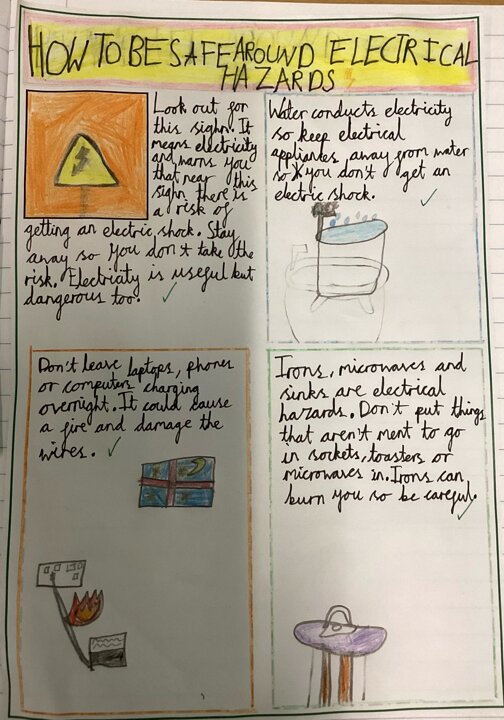 HOW TO BE SAFE AROUND ELECTRICAL
HAZARDS
Look out for
this sighn. It
means electricity
and warns you
that near this
sighn there is
a risk of
getting an electric shock. Stay
away so you don't take the
risk. Electricity is useful but
dangerous too.
Water conducts electricity
so keep electrical
appliances away from water
so you don't get an
electric shock.
Don't leave laptops, phones
or computers charging
overnight. It could cause
a fire and damage the
wires.
Irons, microwaves and
sinks are electrical
hazards. Don't put things
that aren't ment to go
in sockets, toasters or
microwaves in. Irons can
burn you so be careful.